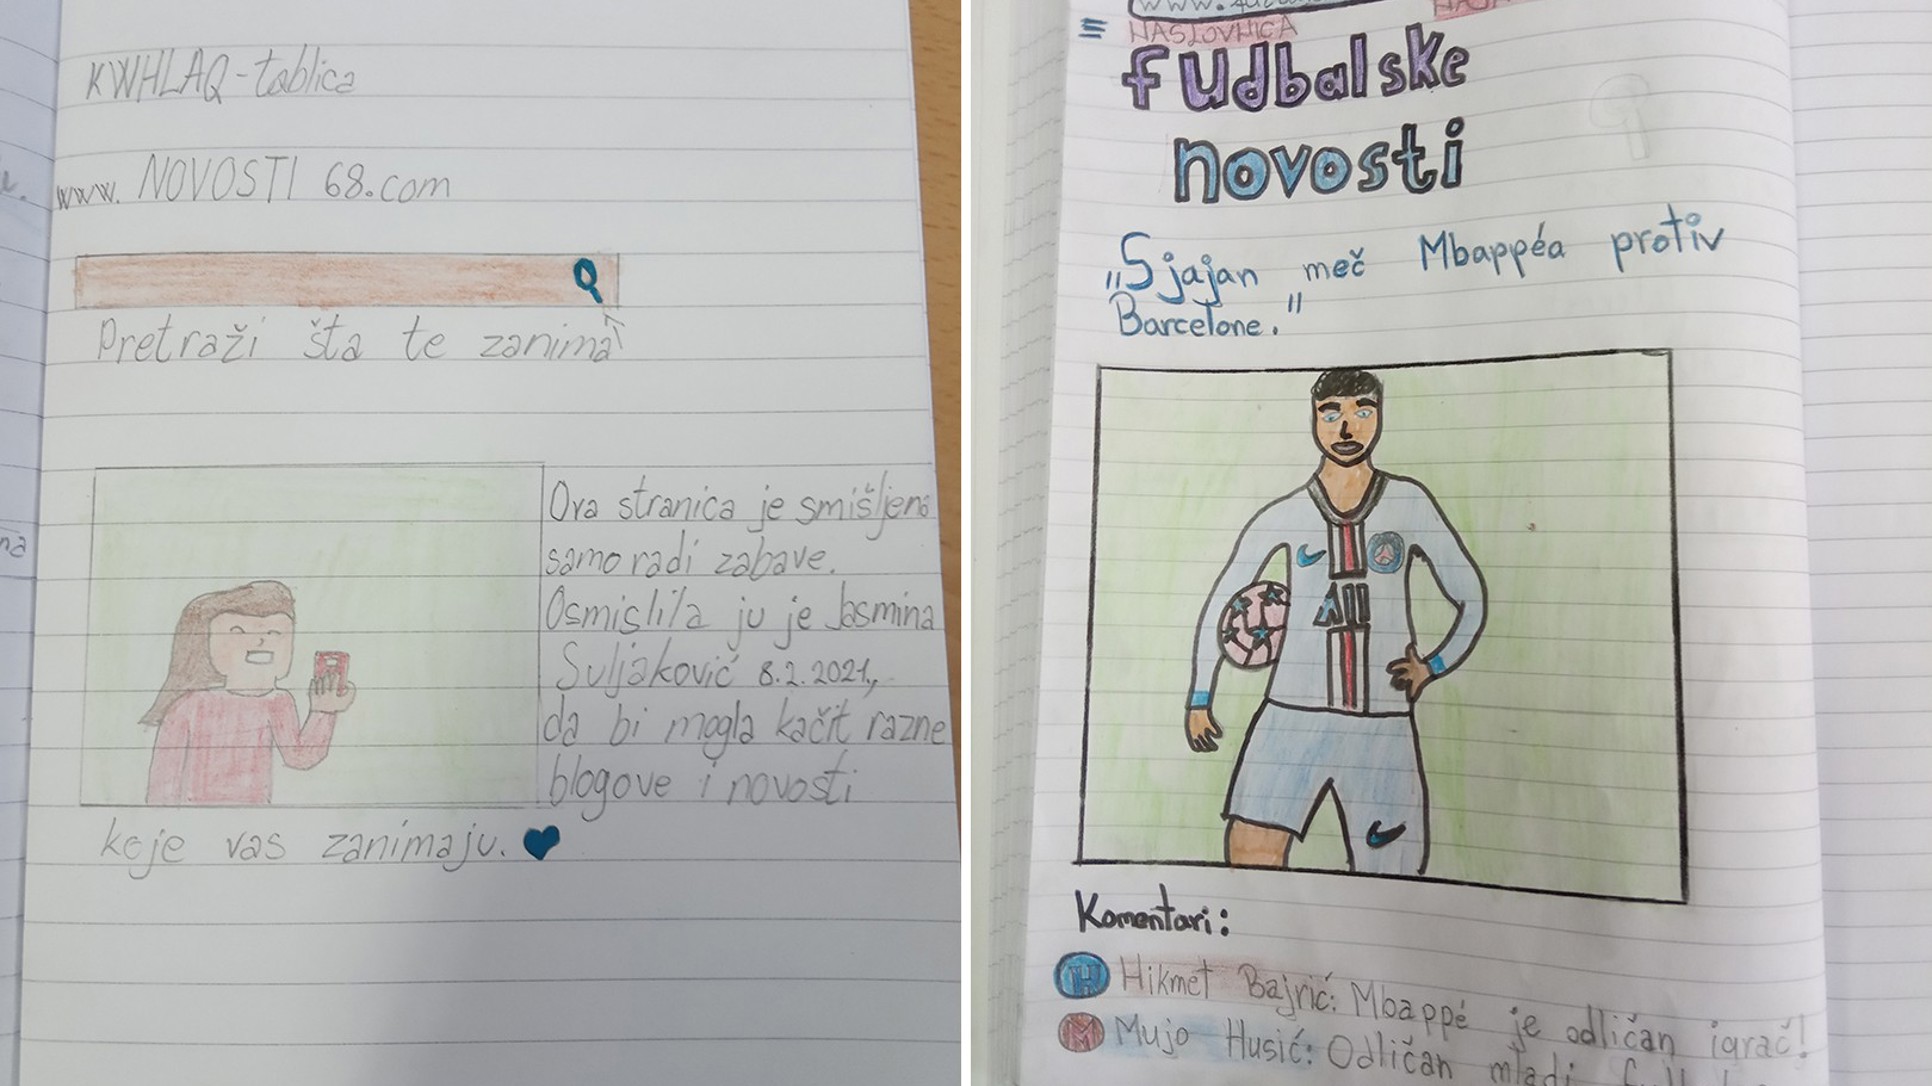 KWHLAQ-tablica
www. NOVOSTI 68.com
Pretraži šta te zanima
Ova stranica je smišljena
samo radi zabave.
Osmislila ju je Jasmina
Suljaković 8.2.2021.,
da bi mogla kačit razne
blogove i novosti
koje vas zanimaju.
www.
NASLOVNICA
fudbalske
novosti
„Sjajan meč Mbappéa protiv
Barcelone."
All
Komentari:
H Hikmet Bajrić: Mbappé je odličan igrač!
M Mujo Husić: Odličan mladi